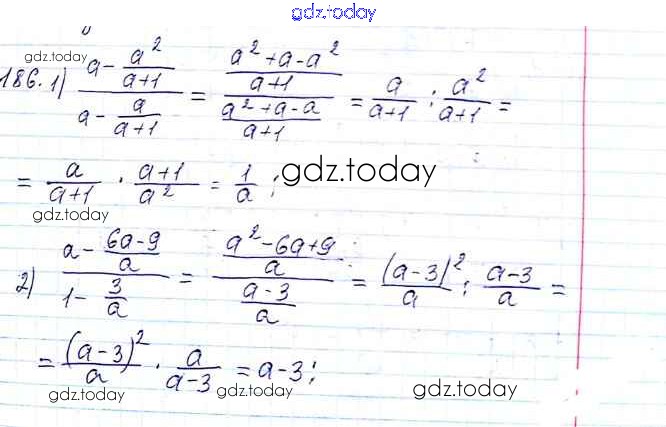 gdz.today
gdz.today
186. 1) (a - a²/(a+1)) / (a - a/(a+1)) = ((a²+a-a²)/(a+1)) / ((a²+a-a)/(a+1)) = a/(a+1) : a²/(a+1) =
= a/(a+1) · (a+1)/a² = 1/a ;
gdz.today
gdz.today
2) (a - (6a-9)/a) / (1 - 3/a) = ((a²-6a+9)/a) / ((a-3)/a) = (a-3)²/a : (a-3)/a =
= (a-3)²/a · a/(a-3) = a-3 ;
gdz.today gdz.today gdz.today